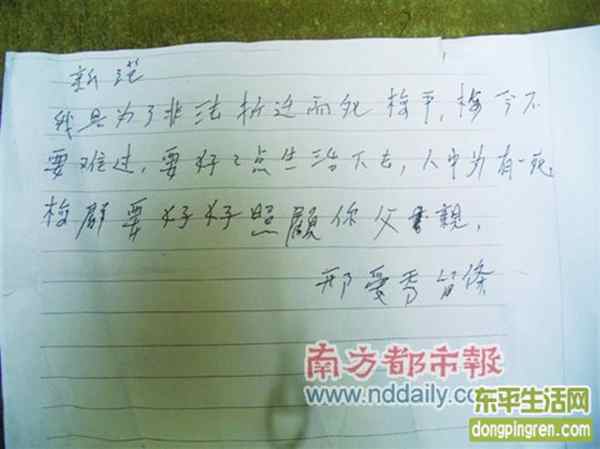 新
我是为了非法拆迁而死 梅平，梅今不
要难过，要好々点生活下去，人中为有一死。
梅 要好好照顾你父母親，
邢爱秀留條
南方都市報
www.nddaily.com
东平生活网
dongpingren.com